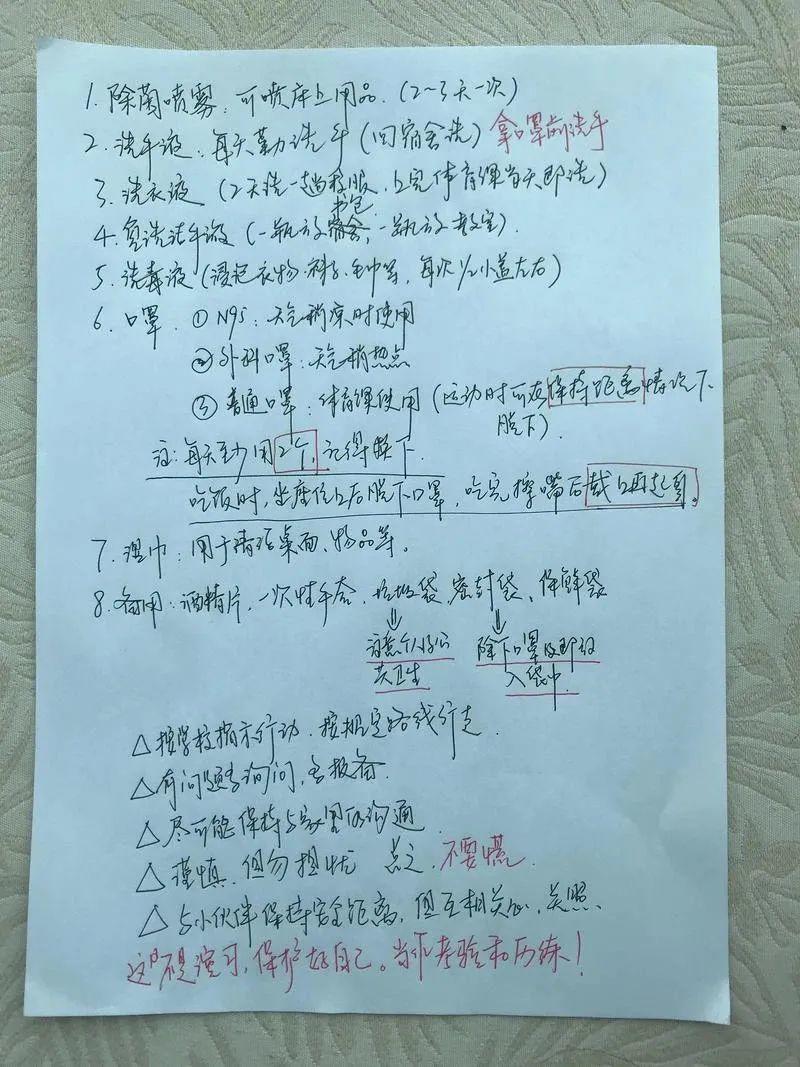 1. 除菌喷雾：可喷床上用品。(2～3天一次)
2. 洗手液：每天勤洗手(回宿舍洗) 拿口罩前洗手
3. 洗衣液 (2天洗一趟校服，上完体育课当天即洗)
书包
4. 免洗洗手液 (一瓶放宿舍，一瓶放教室).
5. 洗毒液 (浸泡衣物、袜子、毛巾等，每次1/2小盖左右)
6. 口罩. ① N95：天气稍凉时使用
② 外科口罩：天气稍热点
③ 普通口罩：体育课使用 (运动时可在保持距离情况下
脱下).
注：每天至少用2个，记得换下.
吃饭时，坐座位上后脱下口罩，吃完擦嘴后戴上再起身。
7. 湿巾：用于清洁桌面、物品等。
8. 备用：酒精片、一次性手套、垃圾袋、密封袋、保鲜袋
注意个人好公 除下口罩及即放
共卫生 入袋中.
△ 按学校指示行动、按规定路线行走.
△ 有问题多询问，多报备.
△ 尽可能保持与家里的沟通
△ 谨慎. 但勿担忧 不要慌.
△ 与小伙伴保持安全距离，但互相关心、关照.
这不是演习，保护好自己。当作考验和历练！